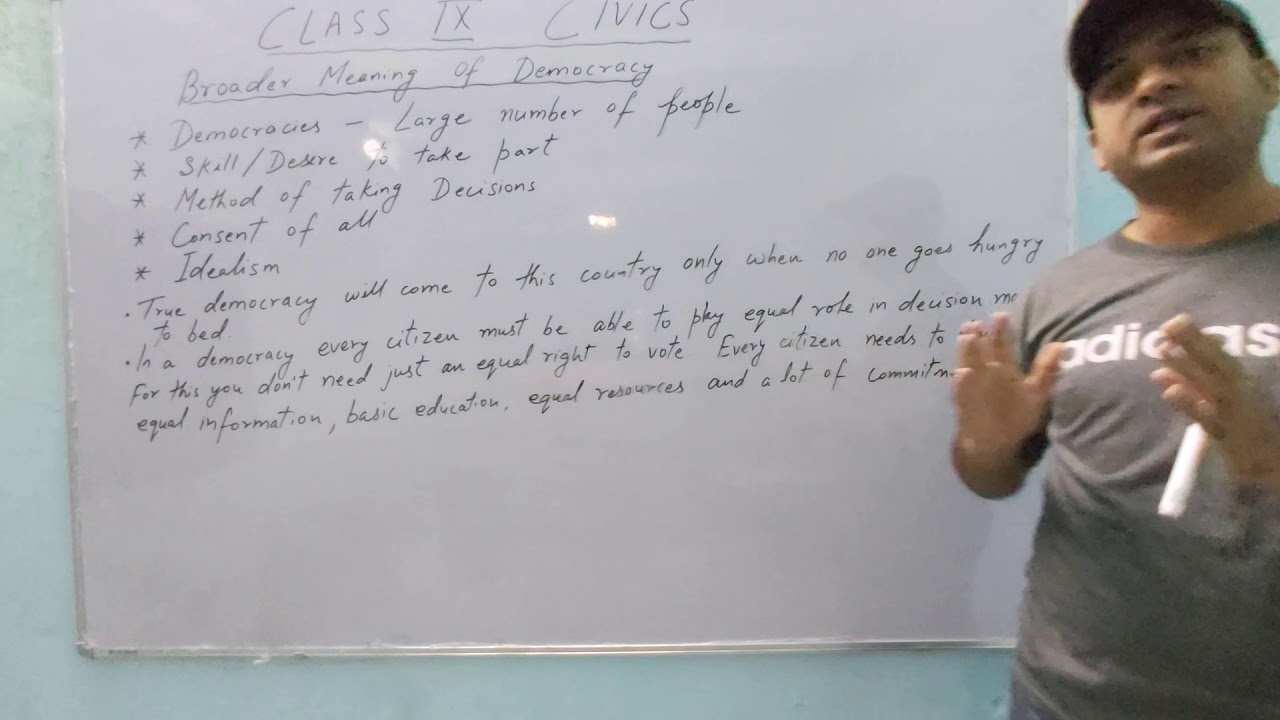 CLASS IX CIVICS
Broader Meaning Of Democracy
* Democracies – Large number of people
* Skill/Desire to take part
* Method of taking Decisions
* Consent of all
* Idealism
. True democracy will come to this country only when no one goes hungry
to bed.
. In a democracy every citizen must be able to play equal role in decision
For this you don't need just an equal right to vote Every citizen needs to
equal information, basic education, equal resources and a lot of
adidas